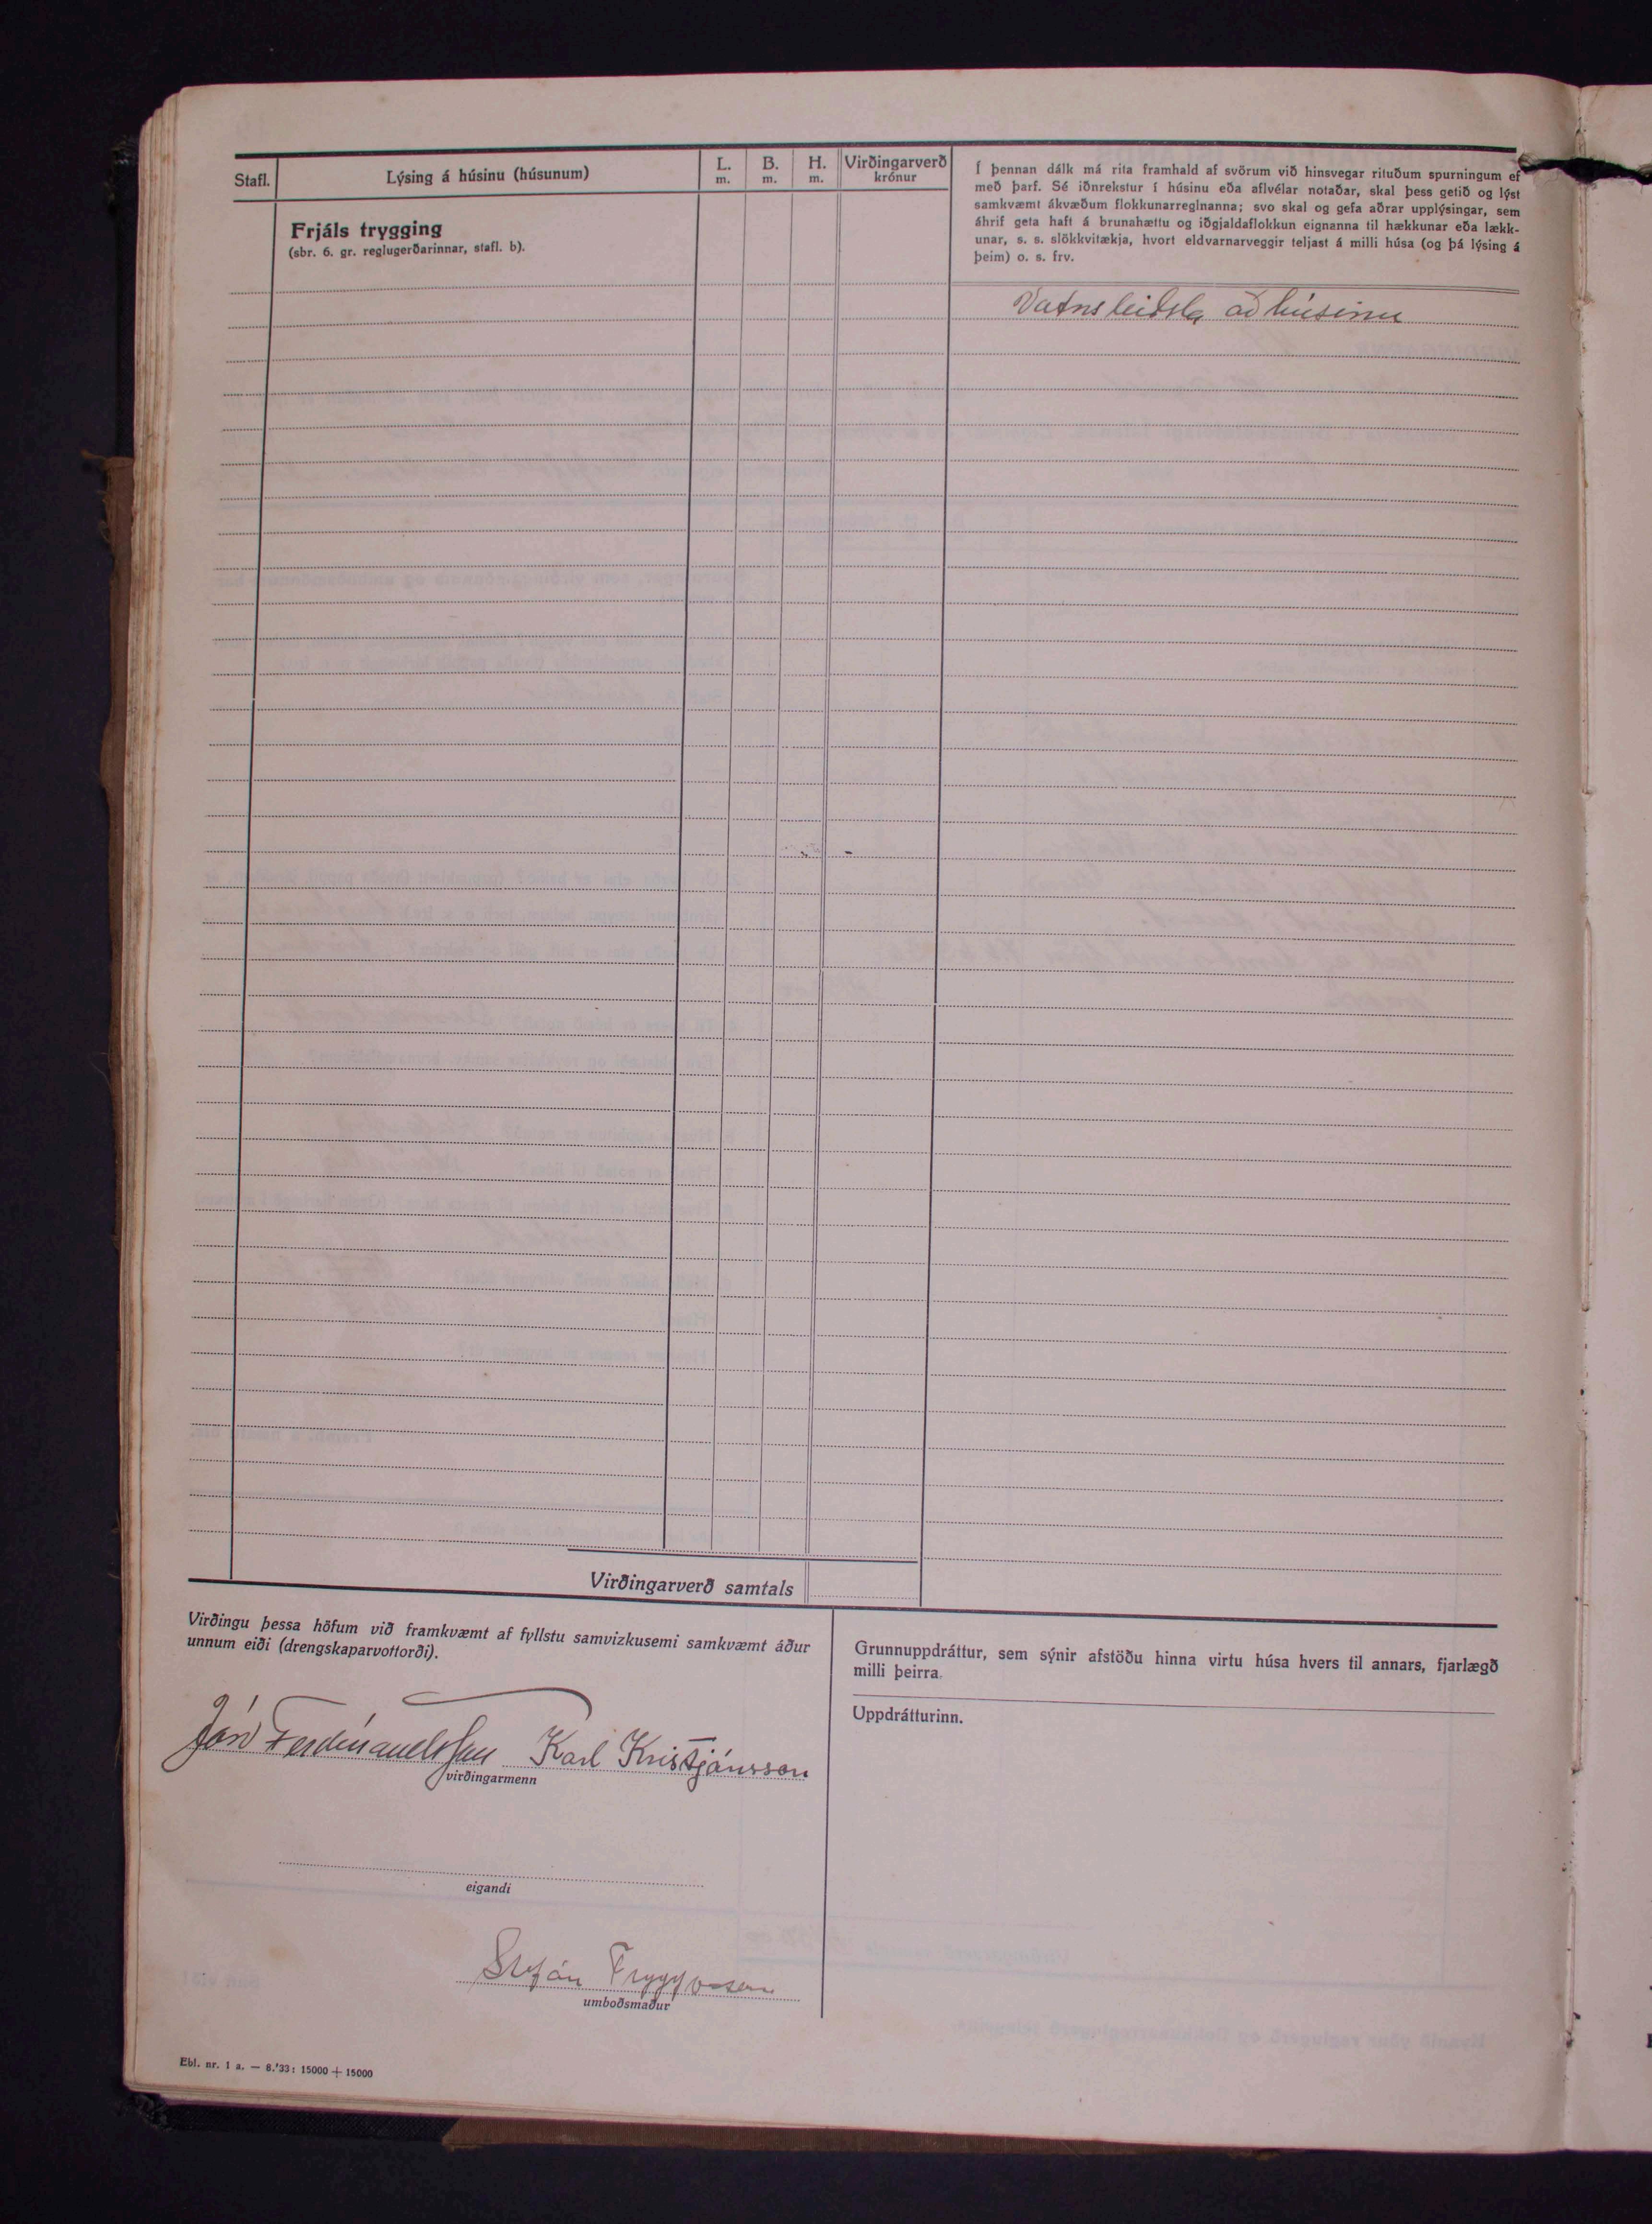 Stafl.
Lýsing á húsinu (húsunum)
L.
m.
B.
m.
H.
m.
Virðingarverð
krónur
Frjáls trygging
(sbr. 6. gr. reglugerðarinnar, stafl. b).
Í þennan dálk má rita framhald af svörum við hinsvegar rituðum spurningum ef
með þarf. Sé iðnrekstur í húsinu eða aflvélar notaðar, skal þess getið og lýst
samkvæmt ákvæðum flokkunarreglnanna; svo skal og gefa aðrar upplýsingar, sem
áhrif geta haft á brunahættu og iðgjaldaflokkun eignanna til hækkunar eða lækk-
unar, s. s. slökkvitækja, hvort eldvarnarveggir teljast á milli húsa (og þá lýsing á
þeim) o. s. frv.
Vatnsleiðsla að húsinu
Virðingarverð samtals
Virðingu þessa höfum við framkvæmt af fyllstu samvizkusemi samkvæmt áður
unnum eiði (drengskaparvottorði).
Jón Ferdínandsson Karl Kristjánsson
virðingarmenn
eigandi
Stefán Tryggvason
umboðsmaður
Grunnuppdráttur, sem sýnir afstöðu hinna virtu húsa hvers til annars, fjarlægð
milli þeirra.
Uppdrátturinn.
Ebl. nr. 1 a. — 8.'33: 15000 + 15000